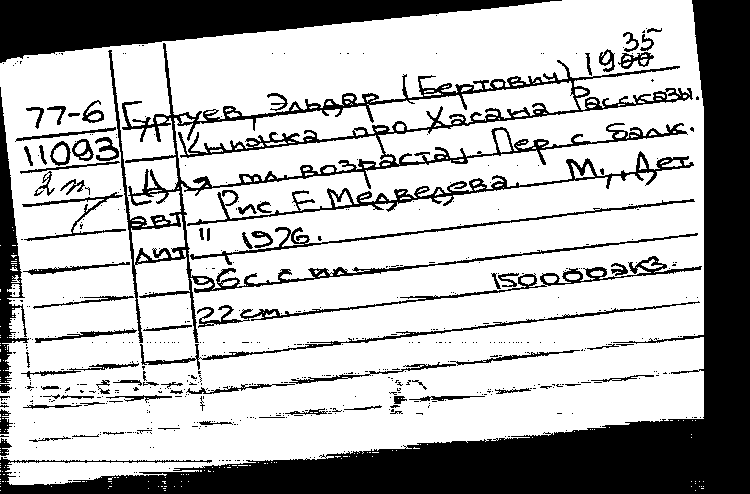 35
77-6 Гуртуев, Эльдар (Бертович) 1900
11093 Книжка про Хасана Рассказы.
2 т [Для мл. возраста]. Пер. с балк.
авт. Рис. Е. Медведева. М., „Дет.
лит.", 1976.
96с. с ил.
22 см. 150000 экз.